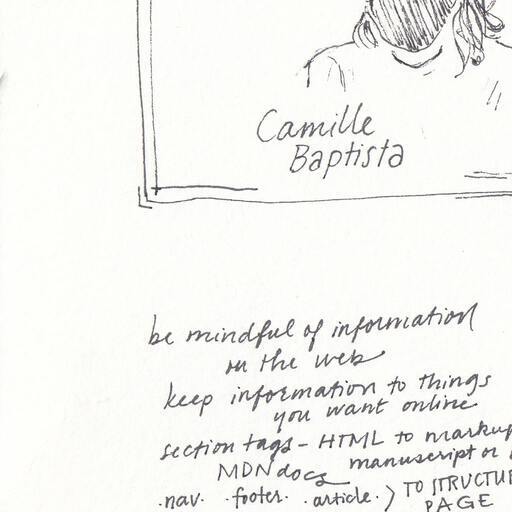 Camille
Baptista
be mindful of information
on the web
keep information to things
you want online
section tags - HTML to markup
MDN docs manuscript or
.nav. .footer. .article. > TO STRUCTU
PAGE